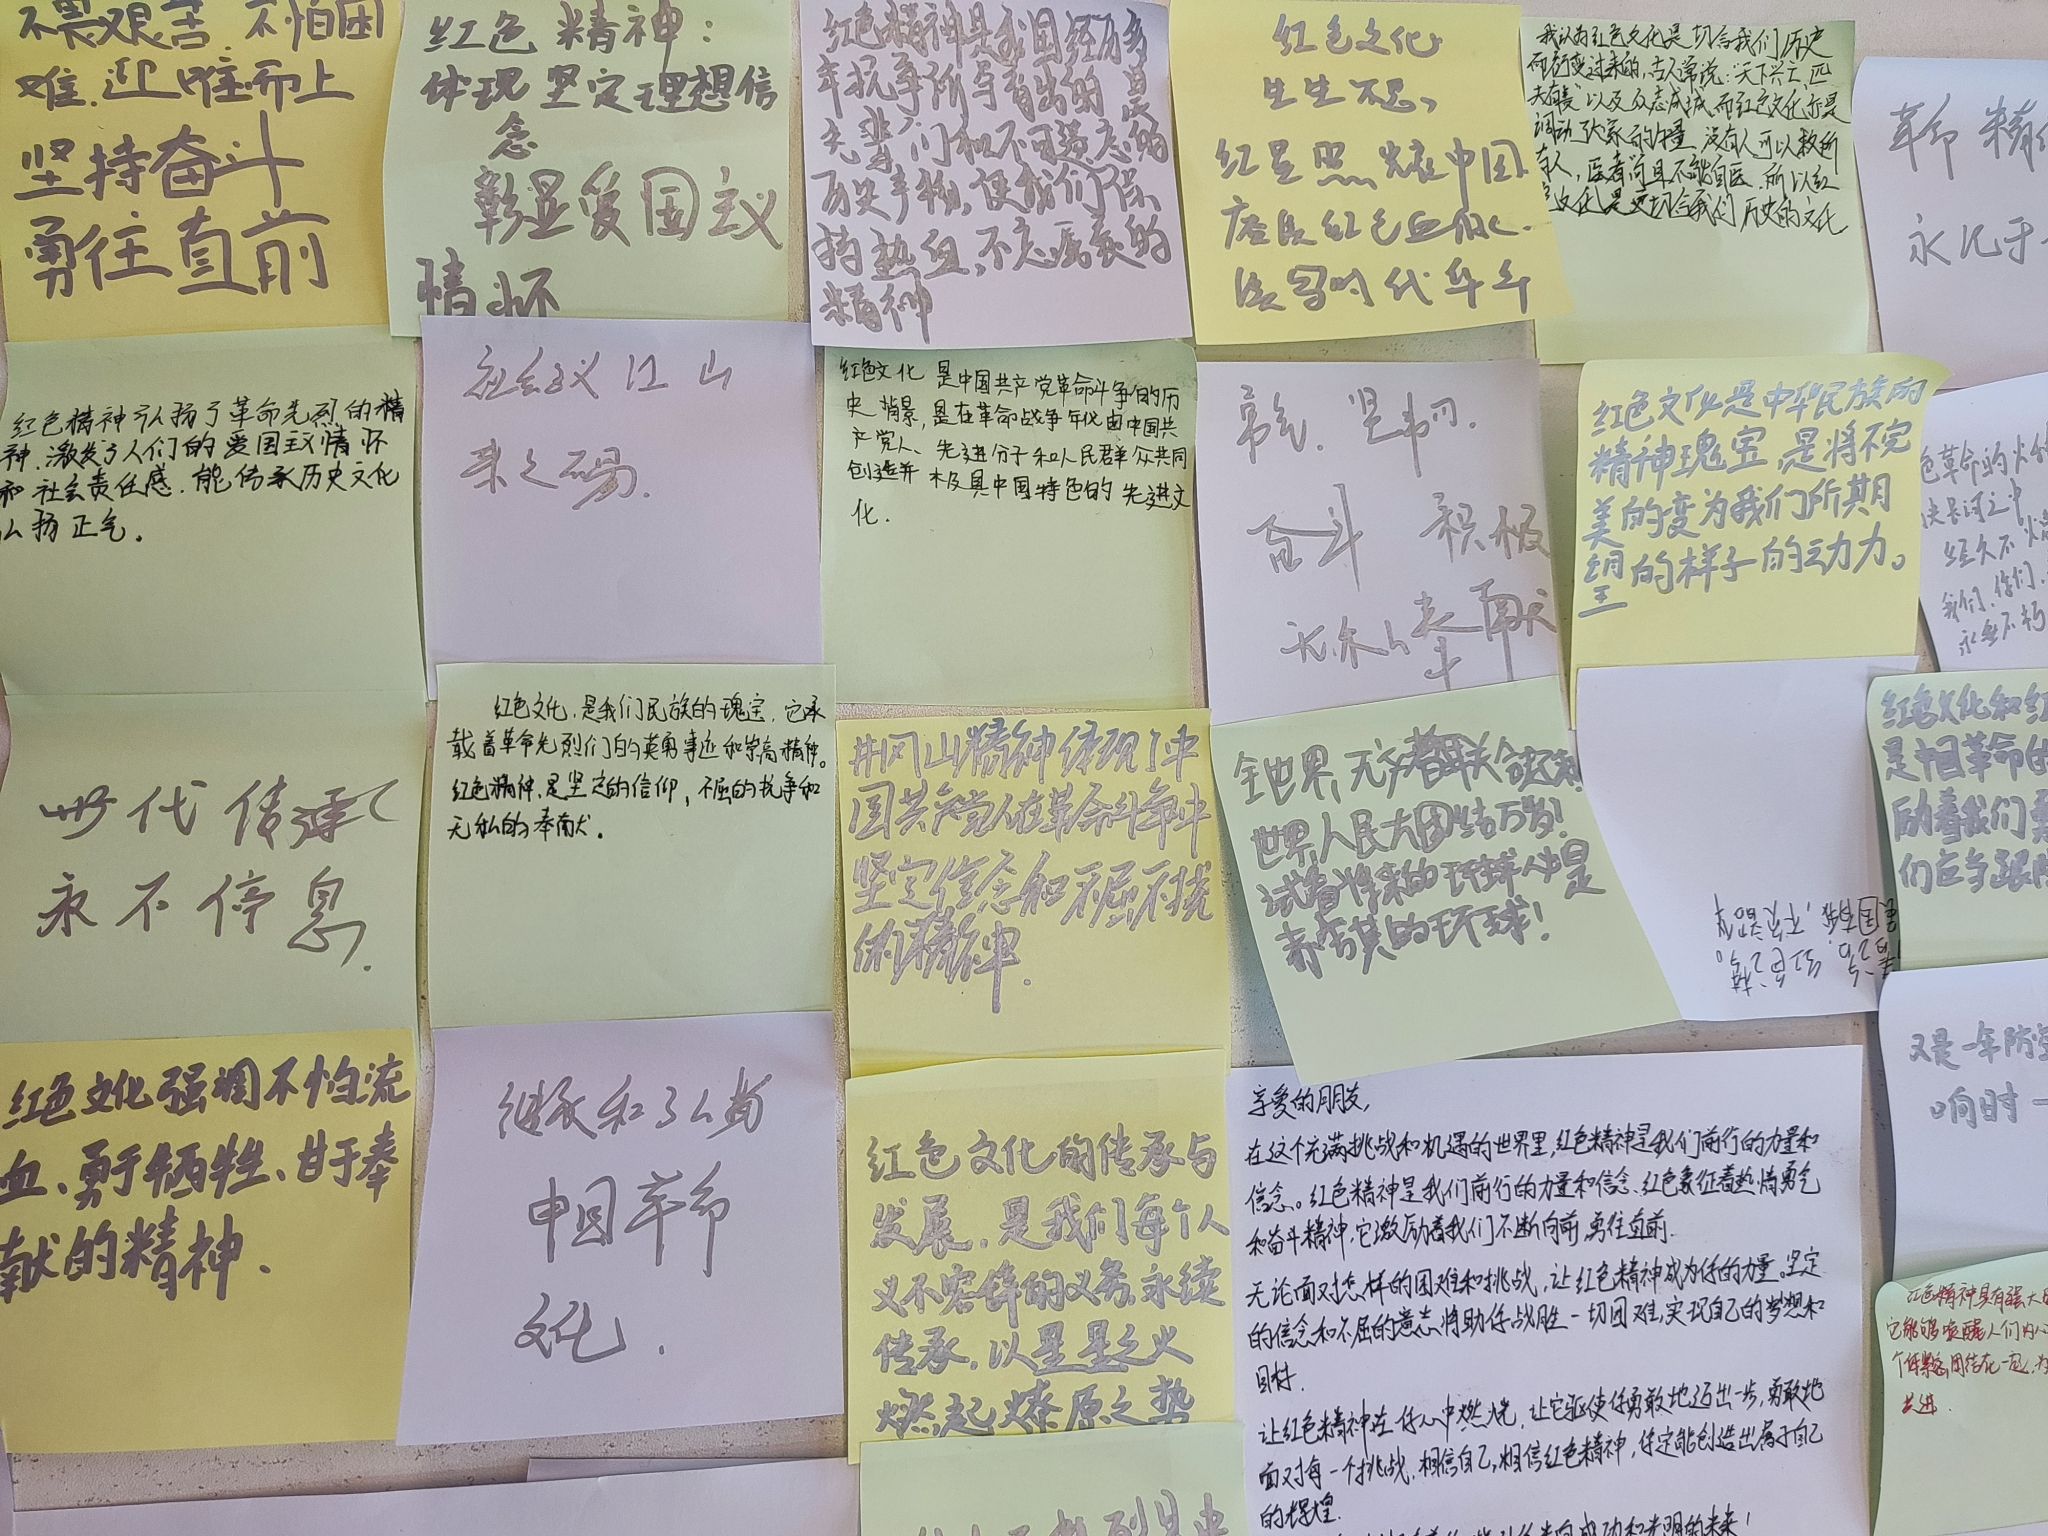 不畏艰苦.不怕困
难.迎难而上
坚持奋斗
勇往直前
红色精神：
体现坚定理想信
念
彰显爱国主义
情怀
红色精神是我国经历多
年抗争所孕育出的 是
先辈们和不可遗忘的
历史产物，使我们保
持热血，不忘
精神
红色文化
生生不息，
红星照耀中国
赓续红色血脉
续写时代华年
我认为红色文化是切合我们历史
而衍变过来的，古人常说："天下兴亡，匹
夫有责"以及众志成城，而红色文化亦是
调动大家的力量 没有人可以救所
有人，医者尚且不能自医，所以红
色文化是更切合我们历史的文化
革命精
永记于
红色精神弘扬了革命先烈的精
神.激发了人们的爱国主义情怀
和社会责任感.能传承历史文化
弘扬正气.
社会主义江山
来之不易.
红色文化 是中国共产党革命斗争的历
史背景，是在革命战争年代由中国共
产党人、先进分子和人民群众共同
创造并极具中国特色的先进文
化.
坚韧.
奋斗 积极
无私 奉献
红色文化是中华民族的
精神瑰宝，是将不完
美的变为我们所期
望的样子的动力。
色革命的火
史长河之中
经久不
我们.你们.
永垂不朽
世代传承
永不停息.
红色文化，是我们民族的瑰宝，它承
载着革命先烈们的英勇事迹和崇高精神。
红色精神，是坚定的信仰，不屈的抗争和
无私的奉献。
井冈山精神体现了中
国共产党人在革命斗争中
坚定信念和不屈不挠
的精神.
全世界，无产者联合起来！
世界人民大团结万岁！
试看将来的环球 必是
赤旗的环球！
红色文化和红
是中国革命的
励着我们勇
们应当跟随
红色文化强调不怕流
血、勇于牺牲、甘于奉
献的精神.
继承和弘扬
中国革命
文化.
红色文化的传承与
发展，是我们每个人
义不容辞的义务，永续
传承，以星星之火
燃起燎原之势
又是一年防
响时一
亲爱的朋友，
在这个充满挑战和机遇的世界里，红色精神是我们前行的力量和
信念。红色精神是我们前行的力量和信念、红色象征着热情勇气
和奋斗精神，它激励着我们不断向前，勇往直前.
无论面对怎样的困难和挑战，让红色精神成为你的力量。坚定
的信念和不屈的意志将助你战胜一切困难，实现自己的梦想和
目标.
让红色精神在你心中燃烧，让它驱使你勇敢地迈出一步，勇敢地
面对每一个挑战，相信自己，相信红色精神，你定能创造出属于自己
的辉煌.
成功和光明的未来！
红色精神具有强大
它能够唤醒人们内心
团结在一起，为
共进.